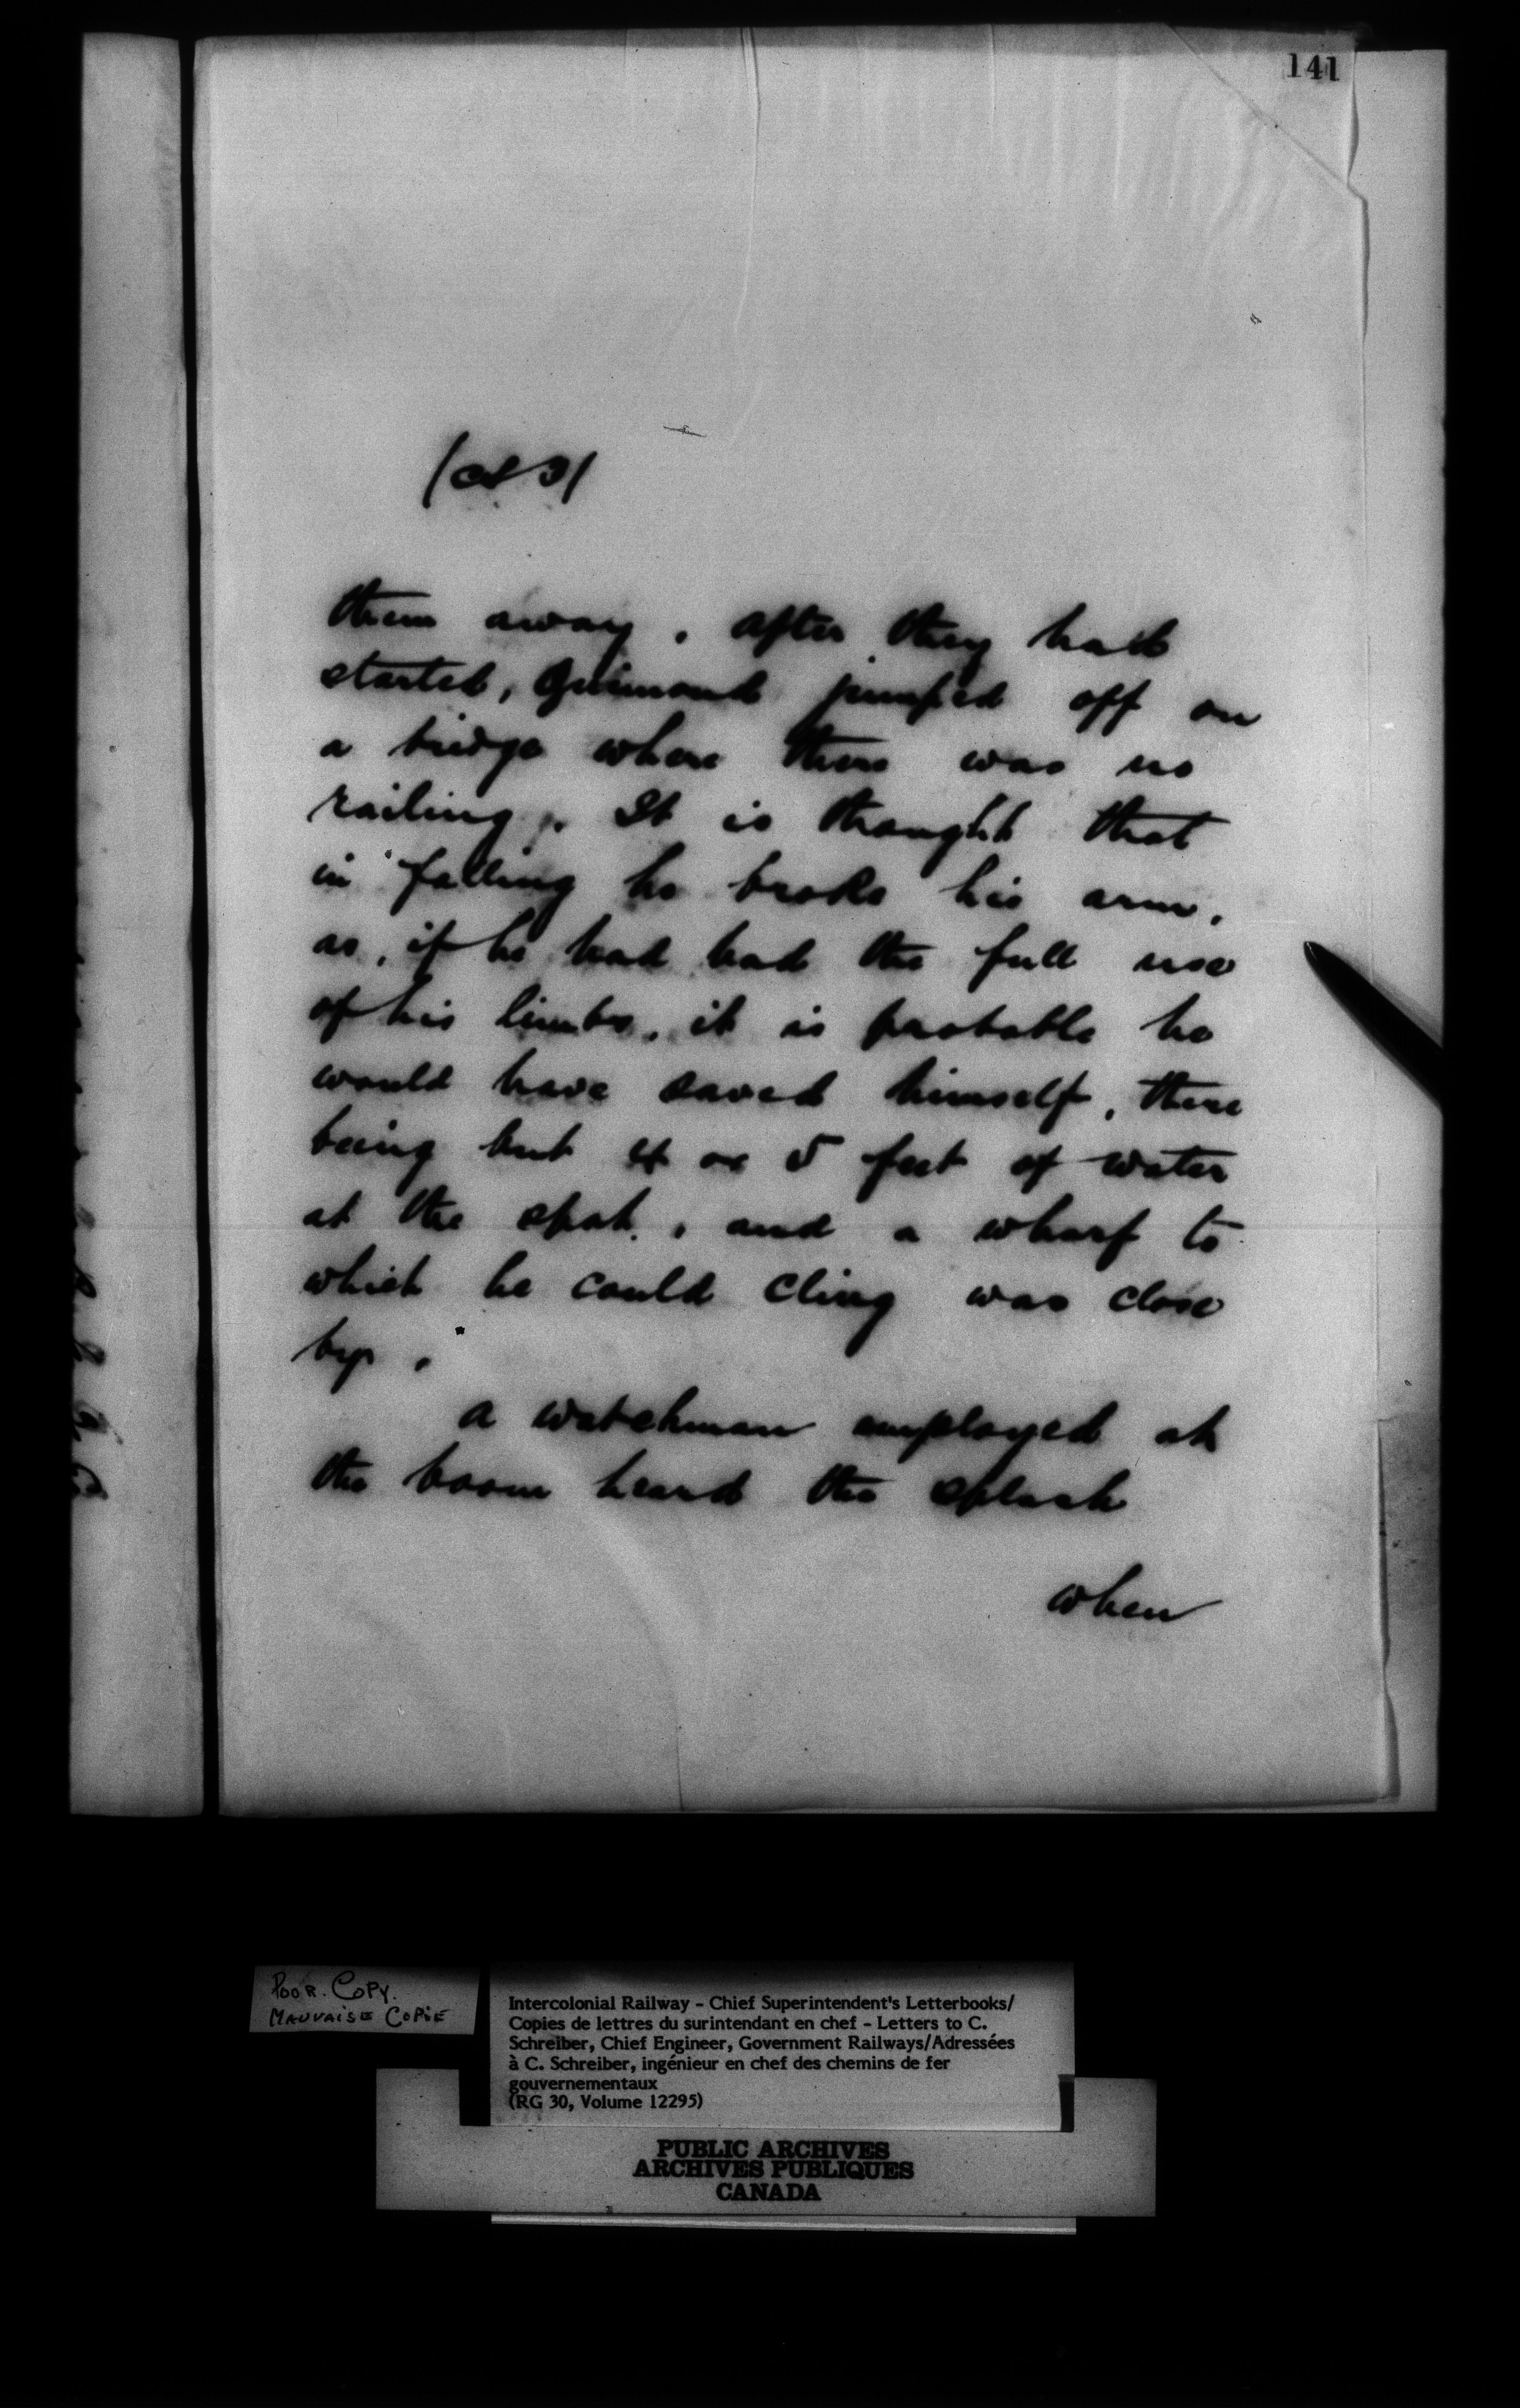 141
them away. After they had
started, Guimond jumped off on
a bridge where there was no
railing. It is thought that
in falling he broke his arm,
as, if he had had the full use
of his limbs, it is probable he
would have saved himself, there
being but 4 or 5 feet of water
at the spot, and a wharf to
which he could cling was close
by.
A watchman employed at
the boom heard the splash
when
POOR. COPY.
MAUVAISE COPIE
Intercolonial Railway - Chief Superintendent's Letterbooks/
Copies de lettres du surintendant en chef - Letters to C.
Schreiber, Chief Engineer, Government Railways/Adressées
à C. Schreiber, ingénieur en chef des chemins de fer
gouvernementaux
(RG 30, Volume 12295)
PUBLIC ARCHIVES
ARCHIVES PUBLIQUES
CANADA